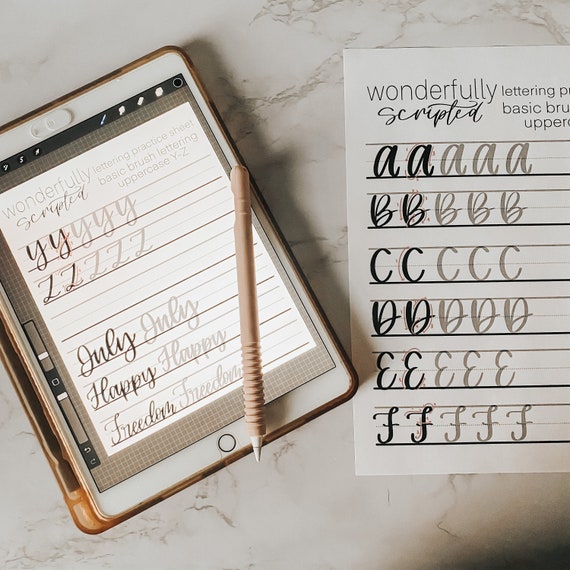 wonderfully lettering practice sheet
scripted basic brush lettering
uppercase Y-Z
y y y y y
Z Z Z Z Z
July July
Happy Happy
Freedom Freedom
wonderfully lettering
scripted basic brush
a a a a a
B B B B B
C C C C C
D D D D D
E E E E E
F F F F F